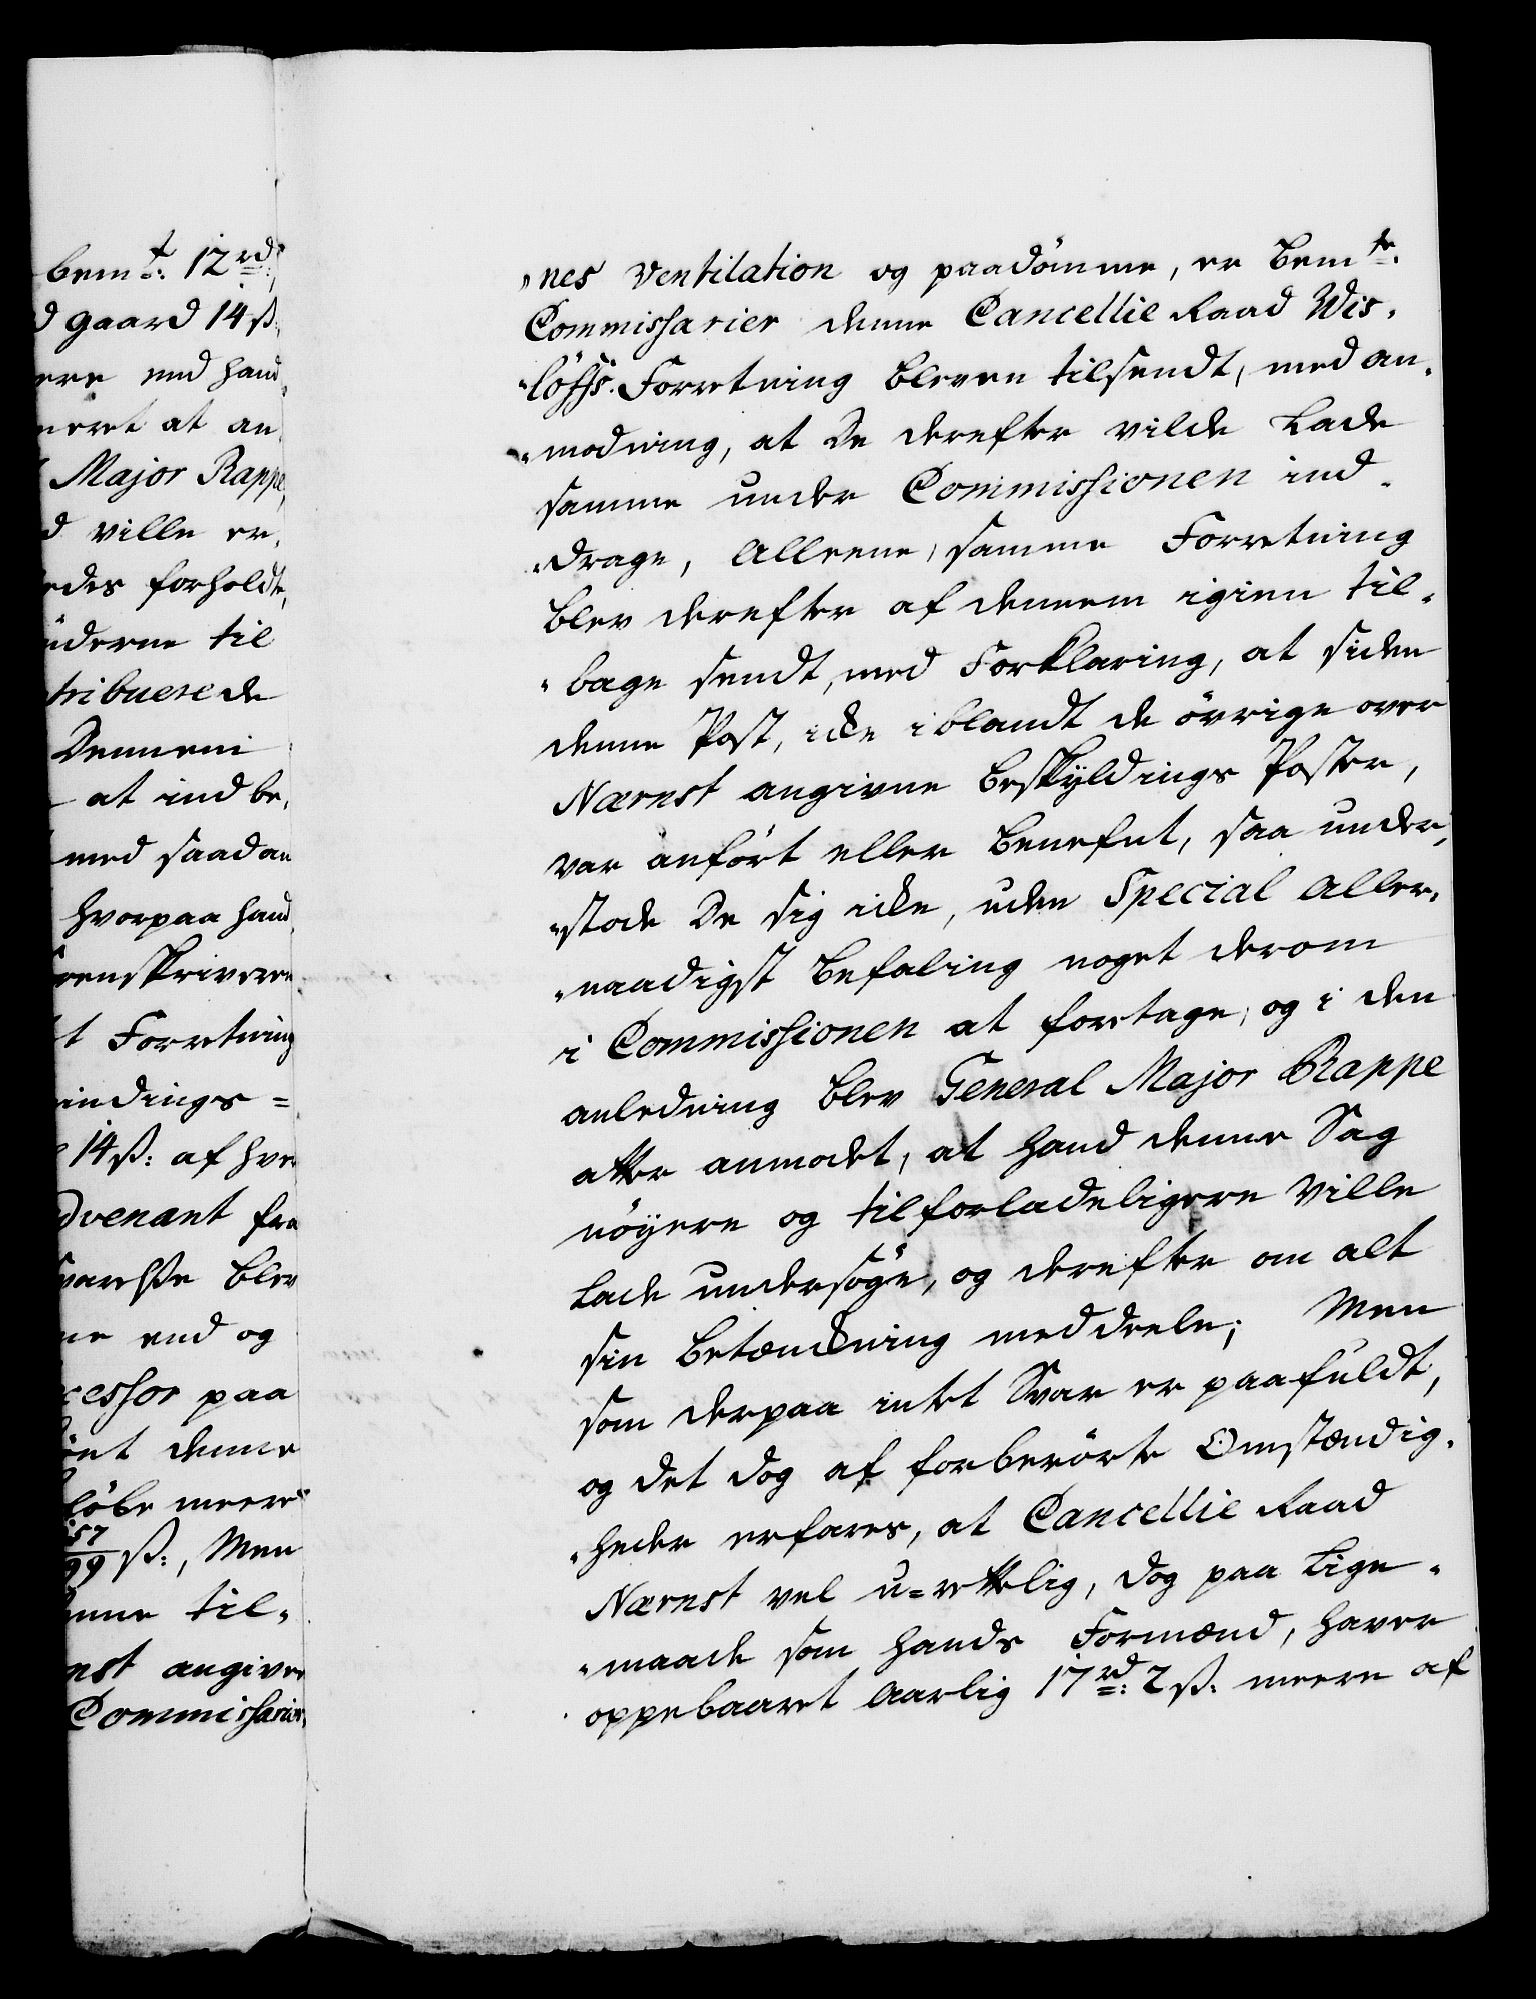 bemt: 12rd:
d gaard 14 ß:
ere end hand
neret at an
Major Rappe,
d ville er,
edes forholdt,
üderne til
tribuerede
Dennem
at ind be,
med saadan
hvorpaa hand
renskriveren
t Forretning
indings=
14 ß: af hver
dvenant fra
blev
ne end og
cessor paa
denne
løbe meere
57/99 ß:, Men
enne til„
nst angiven
Commissarier
„nes Ventilation og paadömme, er bemte:
Commissarier denne Cancellie Raad Wis„
„löffs Forretning bleven tilsendt, med an„
„modning, at De derefter vilde lade
samme under Commissionen ind„
„drage, Alleene, samme Forretning
blev derefter af dennem igien til„
„bage sendt, med Forklaring, at siden
denne Post, icke iblandt de övrige over
Nærnst angivne beskyldings Poster,
var anfört eller benefnt, saa under„
„stode De sig icke, uden Special Aller„
„naadigst befaling noget derom
i Commissionen at foretage, og i den
anledning blev General Major Rappe
atter anmodet, at hand denne Sag
nöyere og tilforladeligere ville
lade undersöge, og derefter om alt
sin betænckning meddeele; Men
som derpaa intet Svar er paafuldt,
og det dog af forberörte Omstændig„
„heder erfares, at Cancellie Raad
Nærnst vel u=rettelig, dog paa lige„
„maade som hands Formænd, haver
oppebaaret Aarlig 17rd: 2 ß: meere af